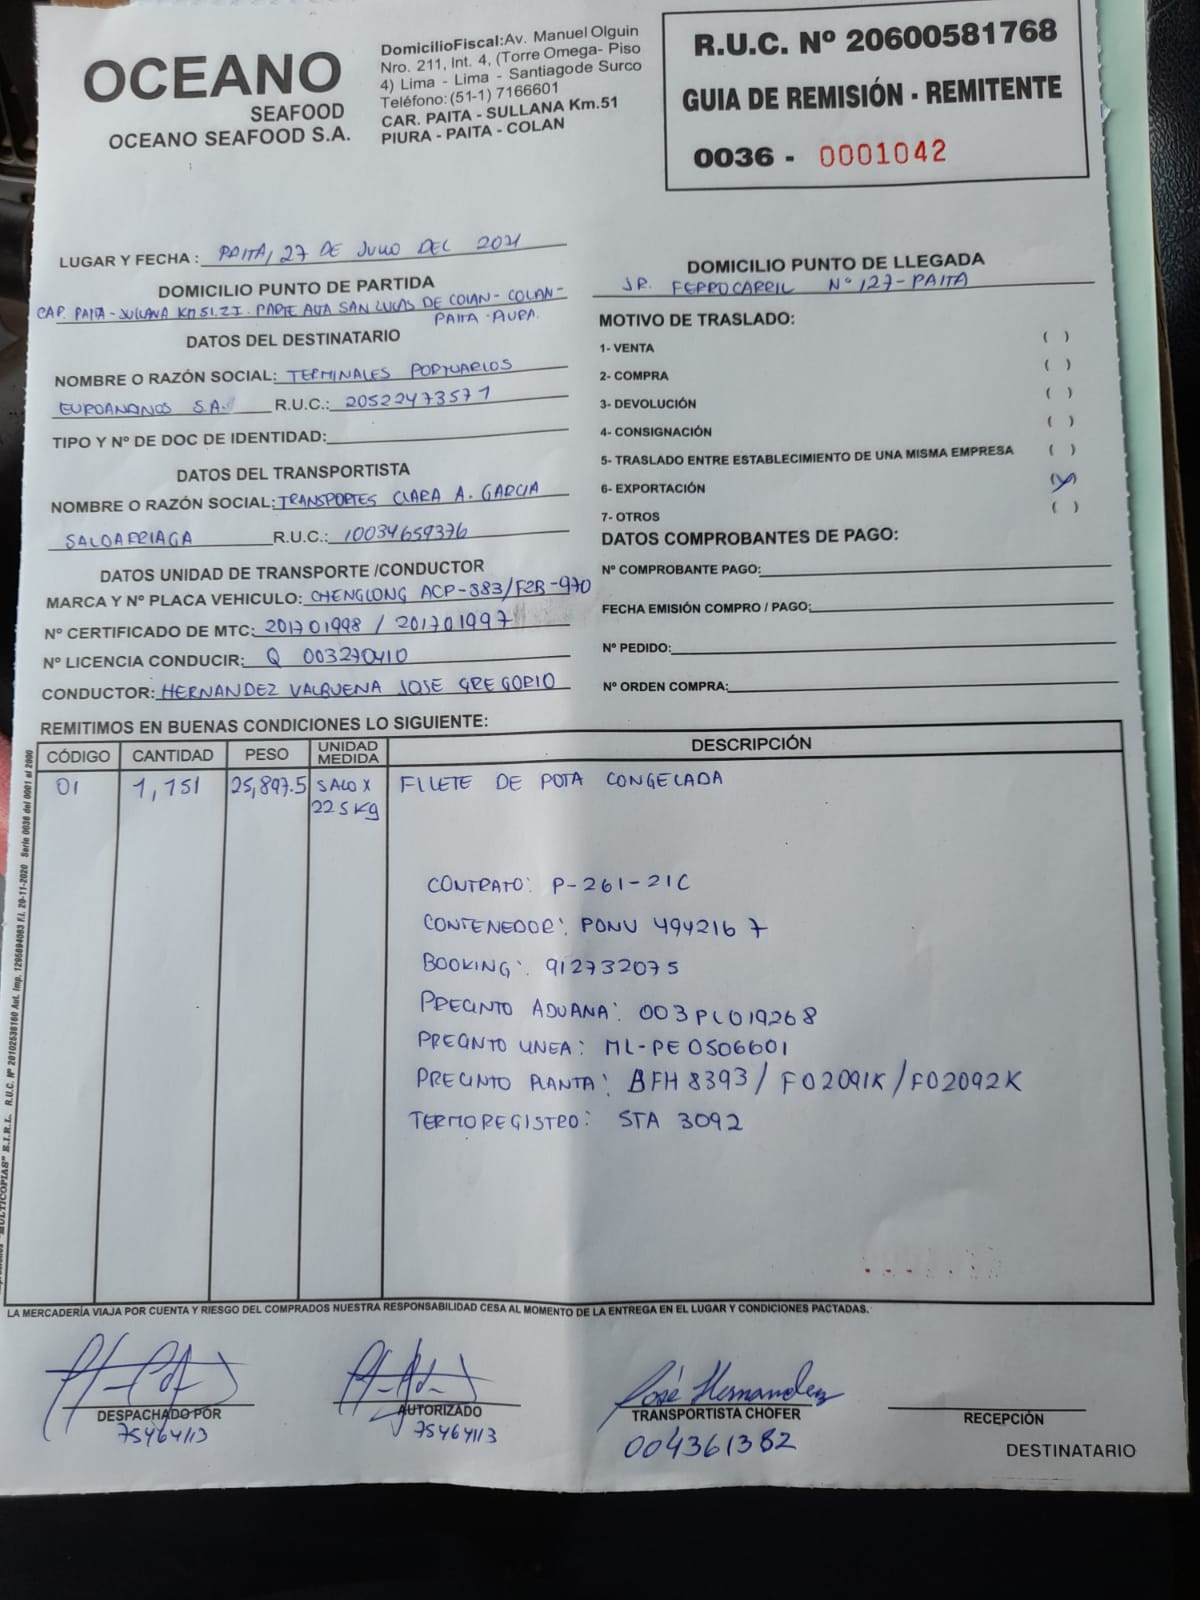 OCEANO
SEAFOOD
OCEANO SEAFOOD S.A.
DomicilioFiscal:Av. Manuel Olguin
Nro. 211, Int. 4, (Torre Omega- Piso
4) Lima - Lima - Santiagode Surco
Teléfono:(51-1) 7166601
CAR. PAITA - SULLANA Km.51
PIURA - PAITA - COLAN
R.U.C. Nº 20600581768
GUIA DE REMISIÓN - REMITENTE
0036 - 0001042
LUGAR Y FECHA : PAITA, 27 DE JULIO DEL 2021
DOMICILIO PUNTO DE PARTIDA
CAR. PAITA-SULLANA KM 51. Z.I. PARTE ALTA SAN LUCAS DE COLAN-COLAN-
PAITA-PIURA.
DATOS DEL DESTINATARIO
NOMBRE O RAZÓN SOCIAL: TERMINALES PORTUARIOS
EUROANDINOS S.A. R.U.C.: 20522473571
TIPO Y Nº DE DOC DE IDENTIDAD:
DATOS DEL TRANSPORTISTA
NOMBRE O RAZÓN SOCIAL: TRANSPORTES CLARA A. GARCIA
SALDARRIAGA R.U.C.: 10034659376
DATOS UNIDAD DE TRANSPORTE /CONDUCTOR
MARCA Y Nº PLACA VEHICULO: CHENGLONG ACP-883/F2R-970
Nº CERTIFICADO DE MTC: 201701998 / 201701997
Nº LICENCIA CONDUCIR: Q 003270410
CONDUCTOR: HERNANDEZ VALBUENA JOSE GREGORIO
DOMICILIO PUNTO DE LLEGADA
JR. FERROCARRIL Nº 127-PAITA
MOTIVO DE TRASLADO:
1- VENTA ( )
2- COMPRA ( )
3- DEVOLUCIÓN ( )
4- CONSIGNACIÓN ( )
5- TRASLADO ENTRE ESTABLECIMIENTO DE UNA MISMA EMPRESA ( )
6- EXPORTACIÓN (X)
7- OTROS ( )
DATOS COMPROBANTES DE PAGO:
Nº COMPROBANTE PAGO:
FECHA EMISIÓN COMPRO / PAGO:
Nº PEDIDO:
Nº ORDEN COMPRA:
REMITIMOS EN BUENAS CONDICIONES LO SIGUIENTE:
CÓDIGO CANTIDAD PESO UNIDAD MEDIDA DESCRIPCIÓN
01 1,151 25,897.5 SACO X 22.5 Kg FILETE DE POTA CONGELADA
CONTRATO: P-261-21C
CONTENEDOR: PONU 494216 7
BOOKING: 912732075
PRECINTO ADUANA: 003PL019268
PRECINTO LINEA: ML-PE0506601
PRECINTO PLANTA: BFH 8393 / F02091K / F02092K
TERMOREGISTRO: STA 3092
LA MERCADERÍA VIAJA POR CUENTA Y RIESGO DEL COMPRADOS NUESTRA RESPONSABILIDAD CESA AL MOMENTO DE LA ENTREGA EN EL LUGAR Y CONDICIONES PACTADAS.
DESPACHADO POR
75464113
AUTORIZADO
75464113
José Hernandez
TRANSPORTISTA CHOFER
004361382
RECEPCIÓN
DESTINATARIO
"MULTICOPIAS" E.I.R.L. R.U.C. Nº 20102536160 Aut. Imp. 1295694063 F.I. 20-11-2020 Serie 0036 del 0001 al 2000